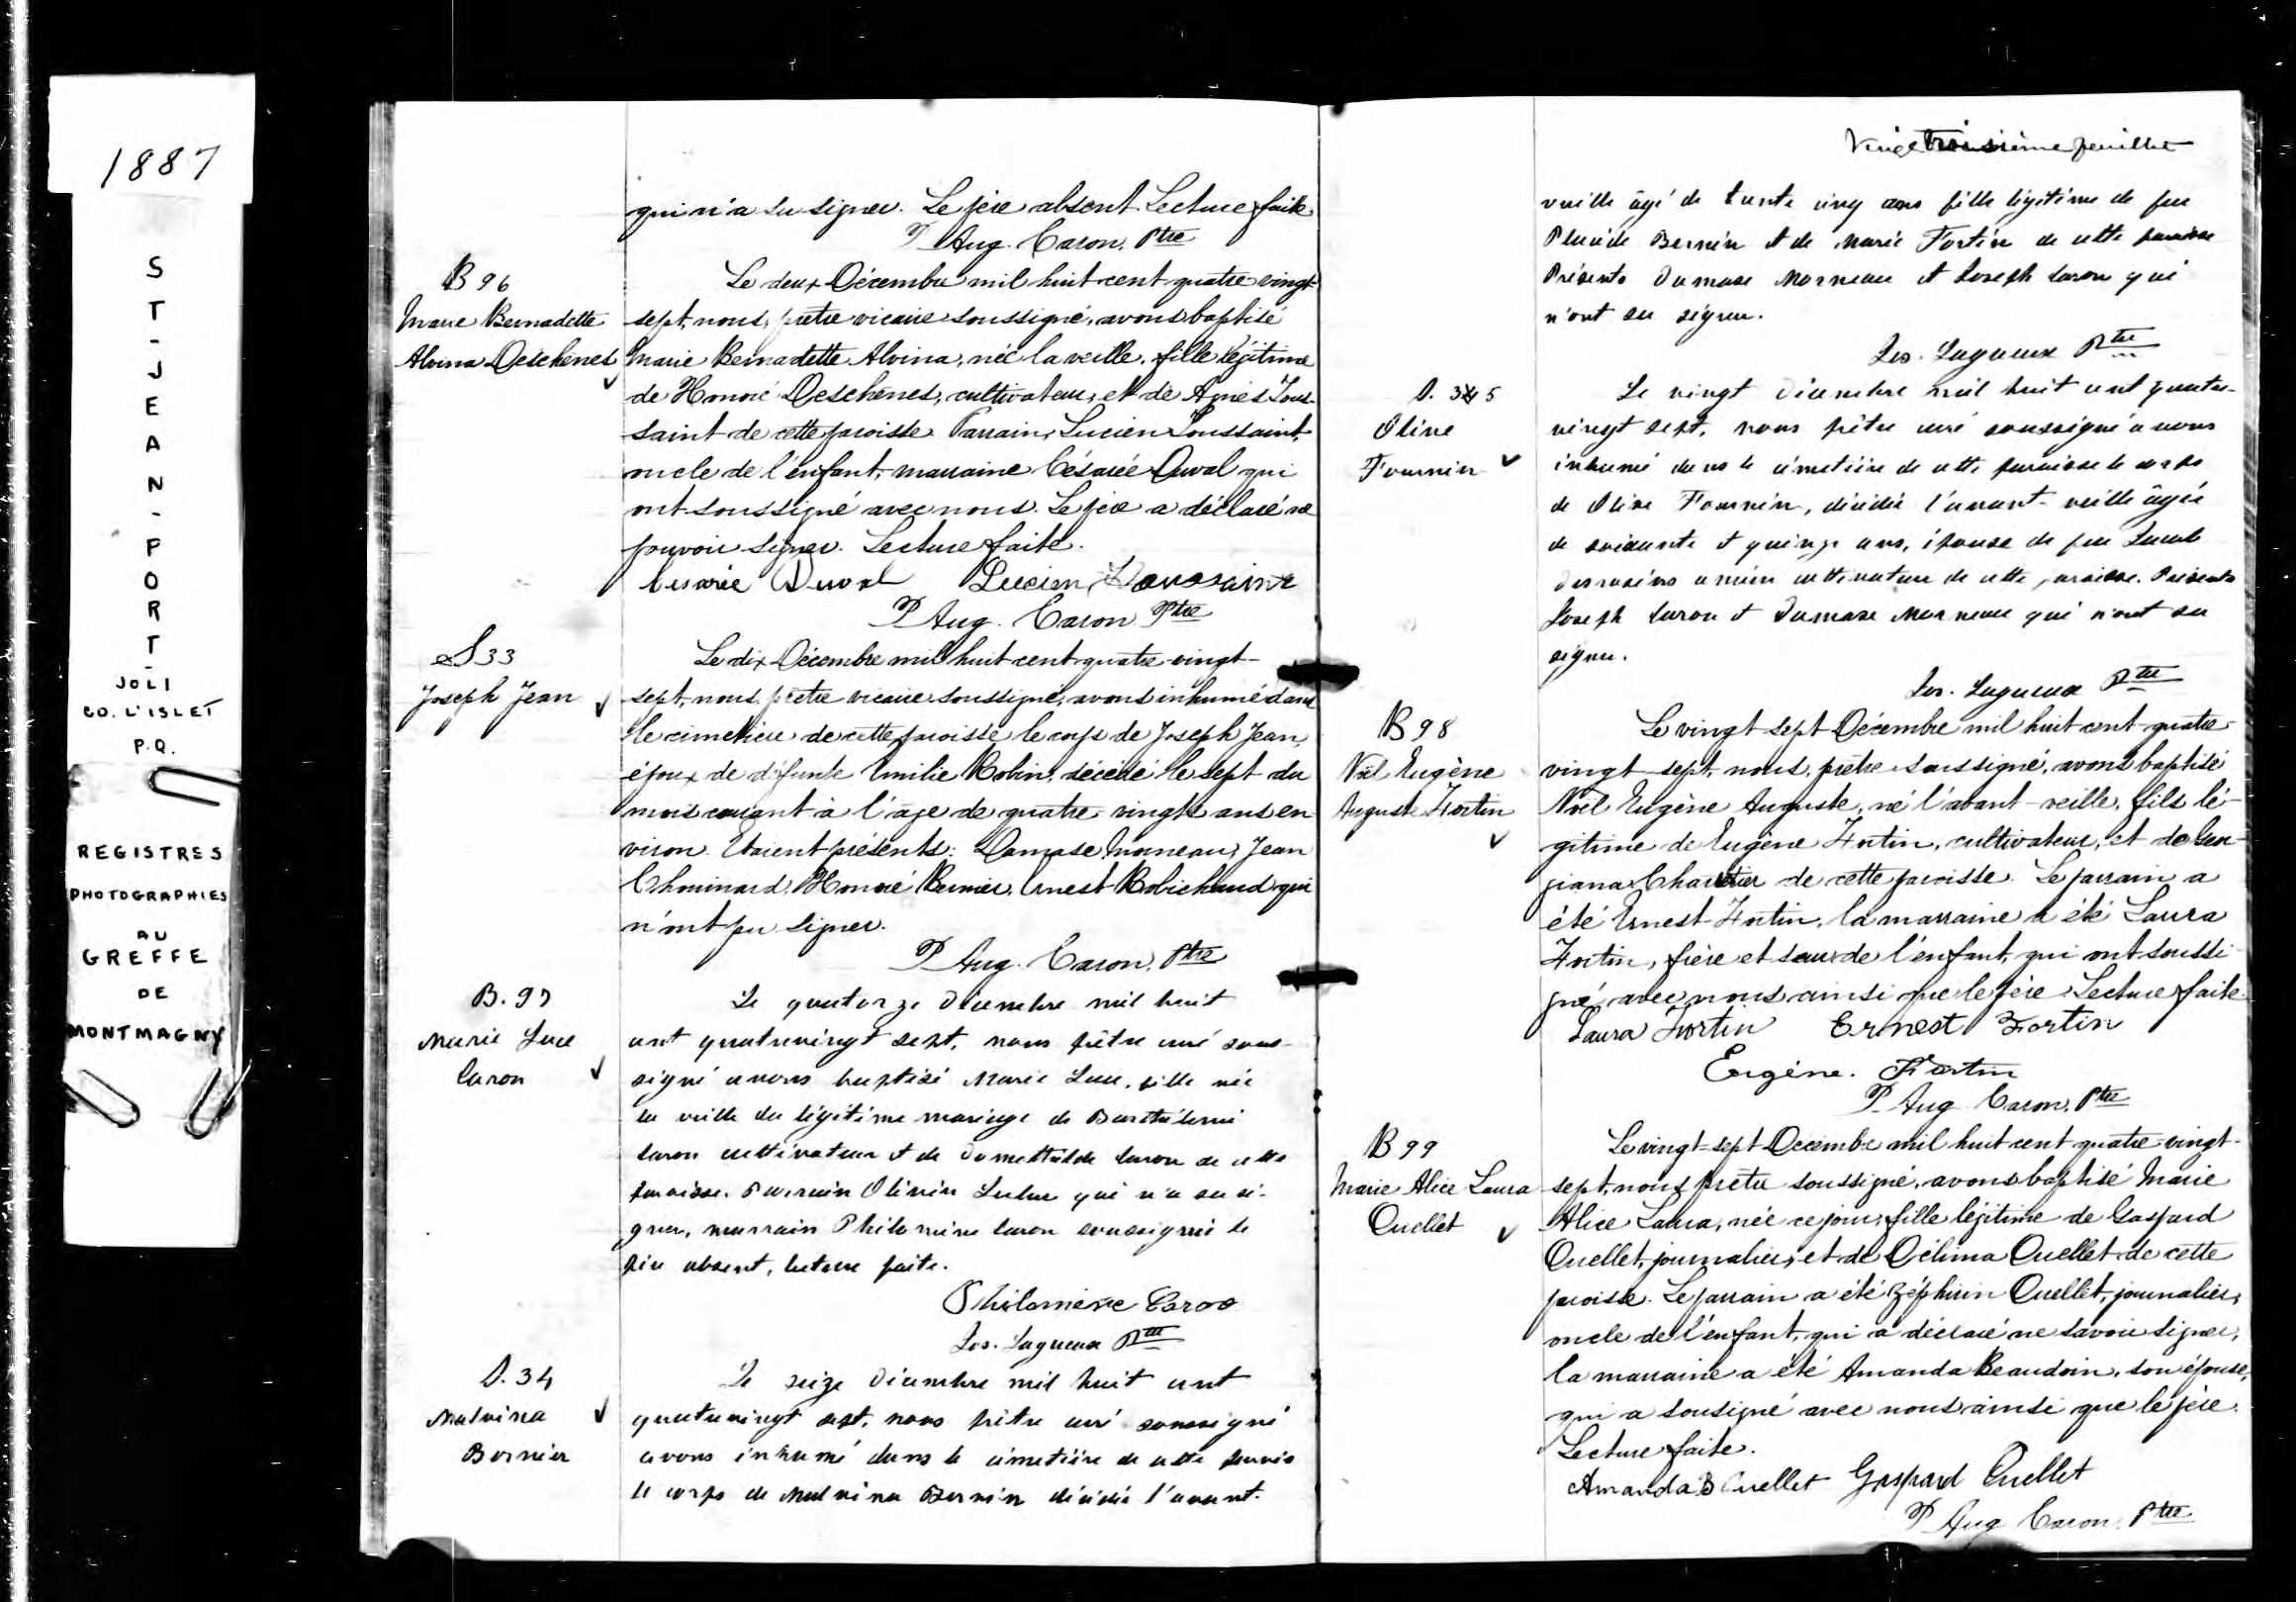 1887
ST-JEAN-PORT-
JOLI
CO. L'ISLET
P.Q.
REGISTRES
PHOTOGRAPHIES
AU
GREFFE
DE
MONTMAGNY
qui n'a su signer. Le père absent. Lecture faite.
P Aug. Caron, Ptre
B 96
Marie Bernadette
Alvina Deschenes
Le deux Décembre mil huit cent quatre vingt-
sept, nous, prêtre vicaire soussigné, avons baptisé
Marie Bernadette Alvina, née la veille, fille légitime
de Honoré Deschênes, cultivateur, et de Agnès Tous-
saint de cette paroisse. Parrain, Lucien Toussaint,
oncle de l'enfant, marraine Césarée Duval qui
ont soussigné avec nous. Le père a déclaré ne
pouvoir signer. Lecture faite.
Cesarée Duval Lucien Toussaint
P Aug. Caron Ptre
S 33
Joseph Jean
Le dix Décembre mil huit cent quatre-vingt-
sept, nous, prêtre vicaire soussigné, avons inhumé dans
le cimetière de cette paroisse le corps de Joseph Jean,
époux de défunte Emilie Robin, décédé le sept du
mois courant à l'âge de quatre-vingts ans en
viron. Etaient présents: Damase Morneau, Jean
Chouinard, Honoré Bernier, Ernest Robichaud qui
n'ont pu signer.
P Aug. Caron, Ptre
B. 97
Marie Luce
Caron
Le quatorze Décembre mil huit
cent quatrevingt sept, nous prêtre curé sous-
signé avons baptisé Marie Luce, fille née
la veille du légitime mariage de Barthélemi
Caron cultivateur et de Domethilde Caron de cette
paroisse. Parrain Olivier Leclerc qui n'a su si-
gner, marraine Philomène Caron soussignée le
père absent, lecture faite.
Philomène Caron
Jos. Lagueux Ptre
S. 34
Malvina
Bernier
Le seize Décembre mil huit cent
quatrevingt sept, nous prêtre curé soussigné
avons inhumé dans le cimetière de cette paroisse
le corps de Malvina Bernier décédée l'avant-
Vingt troisième feuillet
veille âgé de trente cinq ans fille légitime de feu
Placide Bernier et de Marie Fortin de cette paroisse
Présents Damase Morneau et Joseph Caron qui
n'ont su signer.
Jos. Lagueux Ptre
S. 345
Olive
Fournier
Le vingt Décembre mil huit cent quatre-
vingt sept, nous prêtre curé soussigné avons
inhumé dans le cimetière de cette paroisse le corps
de Olive Fournier, décédée l'avant-veille âgée
de soixante et quinze ans, épouse de feu Jacob
Desrosiers ancien cultivateur de cette paroisse. Présents
Joseph Caron et Damase Morneau qui n'ont su
signer.
Jos. Lagueux Ptre
B 98
Noël Eugène
Auguste Fortin
Le vingt-sept Décembre mil huit cent quatre-
vingt-sept, nous, prêtre soussigné, avons baptisé
Noël Eugène Auguste, né l'avant-veille, fils lé-
gitime de Eugène Fortin, cultivateur, et de Geor-
giana Chartier de cette paroisse. Le parrain a
été Ernest Fortin, la marraine a été Laura
Fortin, frère et soeur de l'enfant, qui ont soussi-
gné avec nous ainsi que le père. Lecture faite.
Laura Fortin Ernest Fortin
Eugène. Fortin
P Aug Caron, Ptre
B 99
Marie Alice Laura
Ouellet
Le vingt-sept Décembre mil huit cent quatre-vingt-
sept, nous, prêtre soussigné, avons baptisé Marie
Alice Laura, née ce jour, fille légitime de Gaspard
Ouellet, journalier, et de Délima Ouellet de cette
paroisse. Le parrain a été Zéphirin Ouellet, journalier,
oncle de l'enfant, qui a déclaré ne savoir signer,
la marraine a été Amanda Beaudoin, son épouse,
qui a sousigné avec nous ainsi que le père.
Lecture faite.
Amanda B Ouellet Gaspard Ouellet
P Aug Caron, Ptre